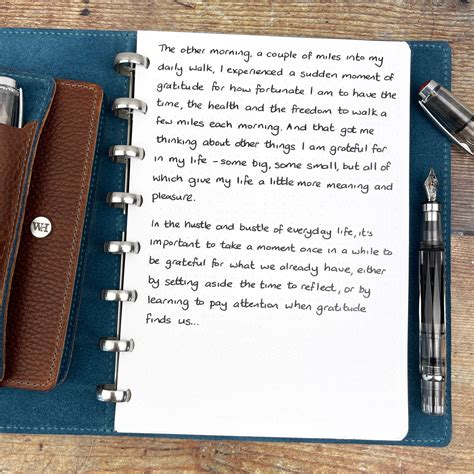 The other morning, a couple of miles into my
daily walk, I experienced a sudden moment of
gratitude for how fortunate I am to have the
time, the health and the freedom to walk a
few miles each morning. And that got me
thinking about other things I am grateful for
in my life - some big, some small, but all of
which give my life a little more meaning and
pleasure.
In the hustle and bustle of everyday life, it's
important to take a moment once in a while to
be grateful for what we already have, either
by setting aside the time to reflect, or by
learning to pay attention when gratitude
finds us...
WH